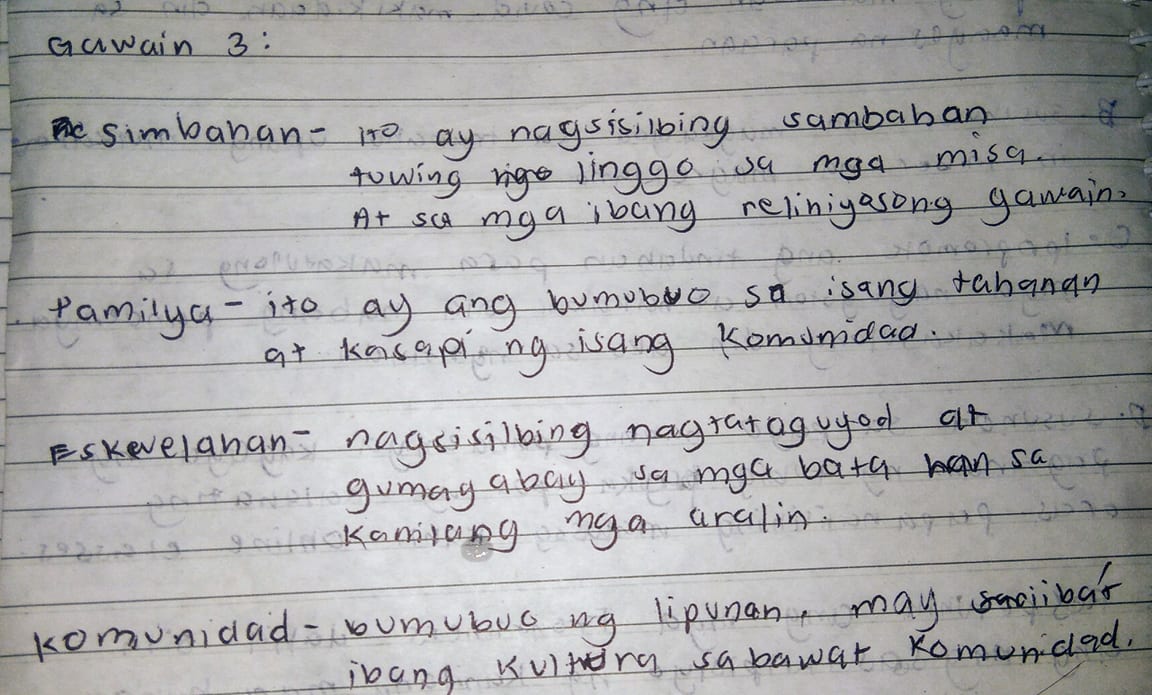 Gawain 3:
simbahan- ito ay nagsisilbing sambahan
tuwing linggo sa mga misa.
At sa mga ibang reliniyasong gawain.
Pamilya - ito ay ang bumubuo sa isang tahanan
at kasapi ng isang Komunidad.
Eskwelahan- nagsisilbing nagtataguyod at
gumagabay sa mga bata sa
kanilang mga aralin.
Komunidad - bumubuo ng lipunan, may
ibang kultura sa bawat Komunidad.